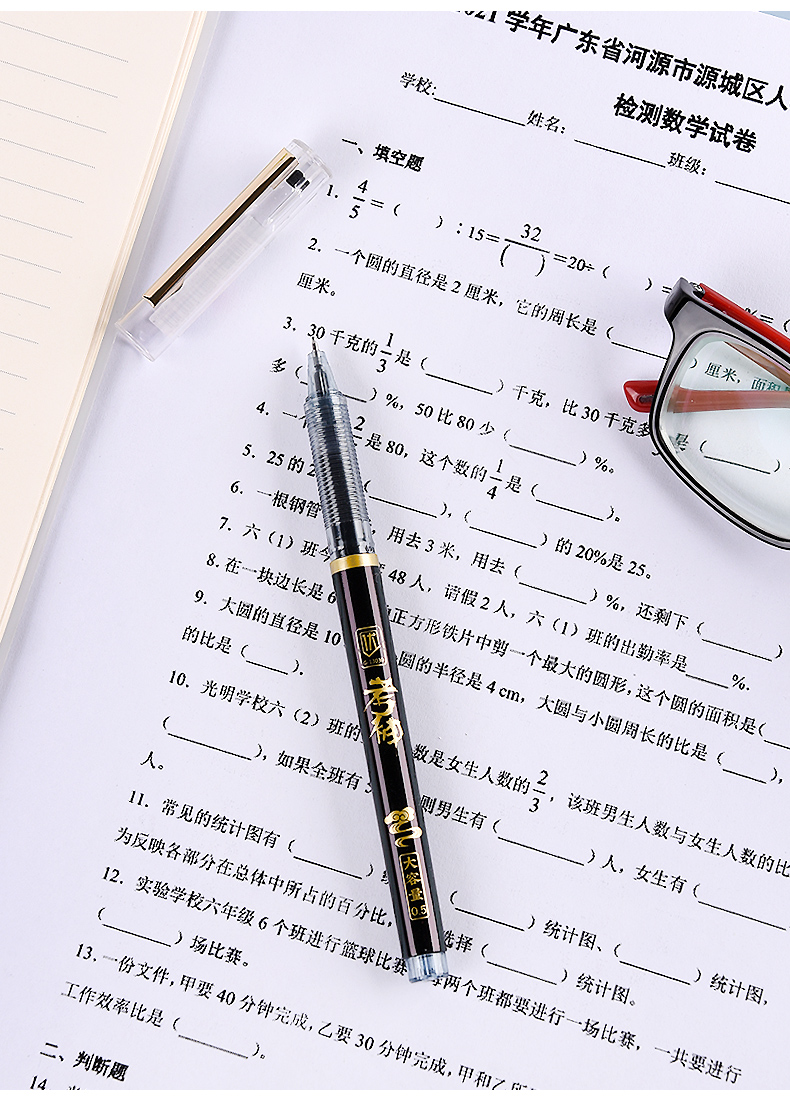 2021学年广东省河源市源城区人
检测数学试卷
学校: 姓名: 班级:
一、填空题
1. 4/5 =( ):15= 32/( ) =20÷( )= %=(
2. 一个圆的直径是2厘米，它的周长是( )厘米，面积是
厘米。
3. 30千克的1/3是( )千克，比30千克多 是( )
多( )%，50比80少( )%。
4. 一 2/ 是80，这个数的1/4是( )。
5. 25的2 ( )，( )的20%是25。
6. 一根钢管 用去3米，用去( )%，还剩下( )
7. 六（1）班今 48人，请假2人，六（1）班的出勤率是 %.
8. 在一块边长是6 正方形铁片中剪一个最大的圆形，这个圆的面积是(
9. 大圆的直径是10 圆的半径是4cm，大圆与小圆周长的比是( )，
的比是( ).
10. 光明学校六（2）班的 数是女生人数的2/3，该班男生人数与女生人数的比
( )，如果全班有 则男生有( )人，女生有(
人。
11. 常见的统计图有( )统 ( )统计图、( )统计图，
为反映各部分在总体中所占的百分比， 选择( )统计图。
12. 实验学校六年级6个班进行篮球比赛 每两个班都要进行一场比赛，一共要进行
( )场比赛。
13. 一份文件，甲要40分钟完成，乙要30分钟完成，甲和乙
工作效率比是( )。
二、判断题
14.
大容量
0.5